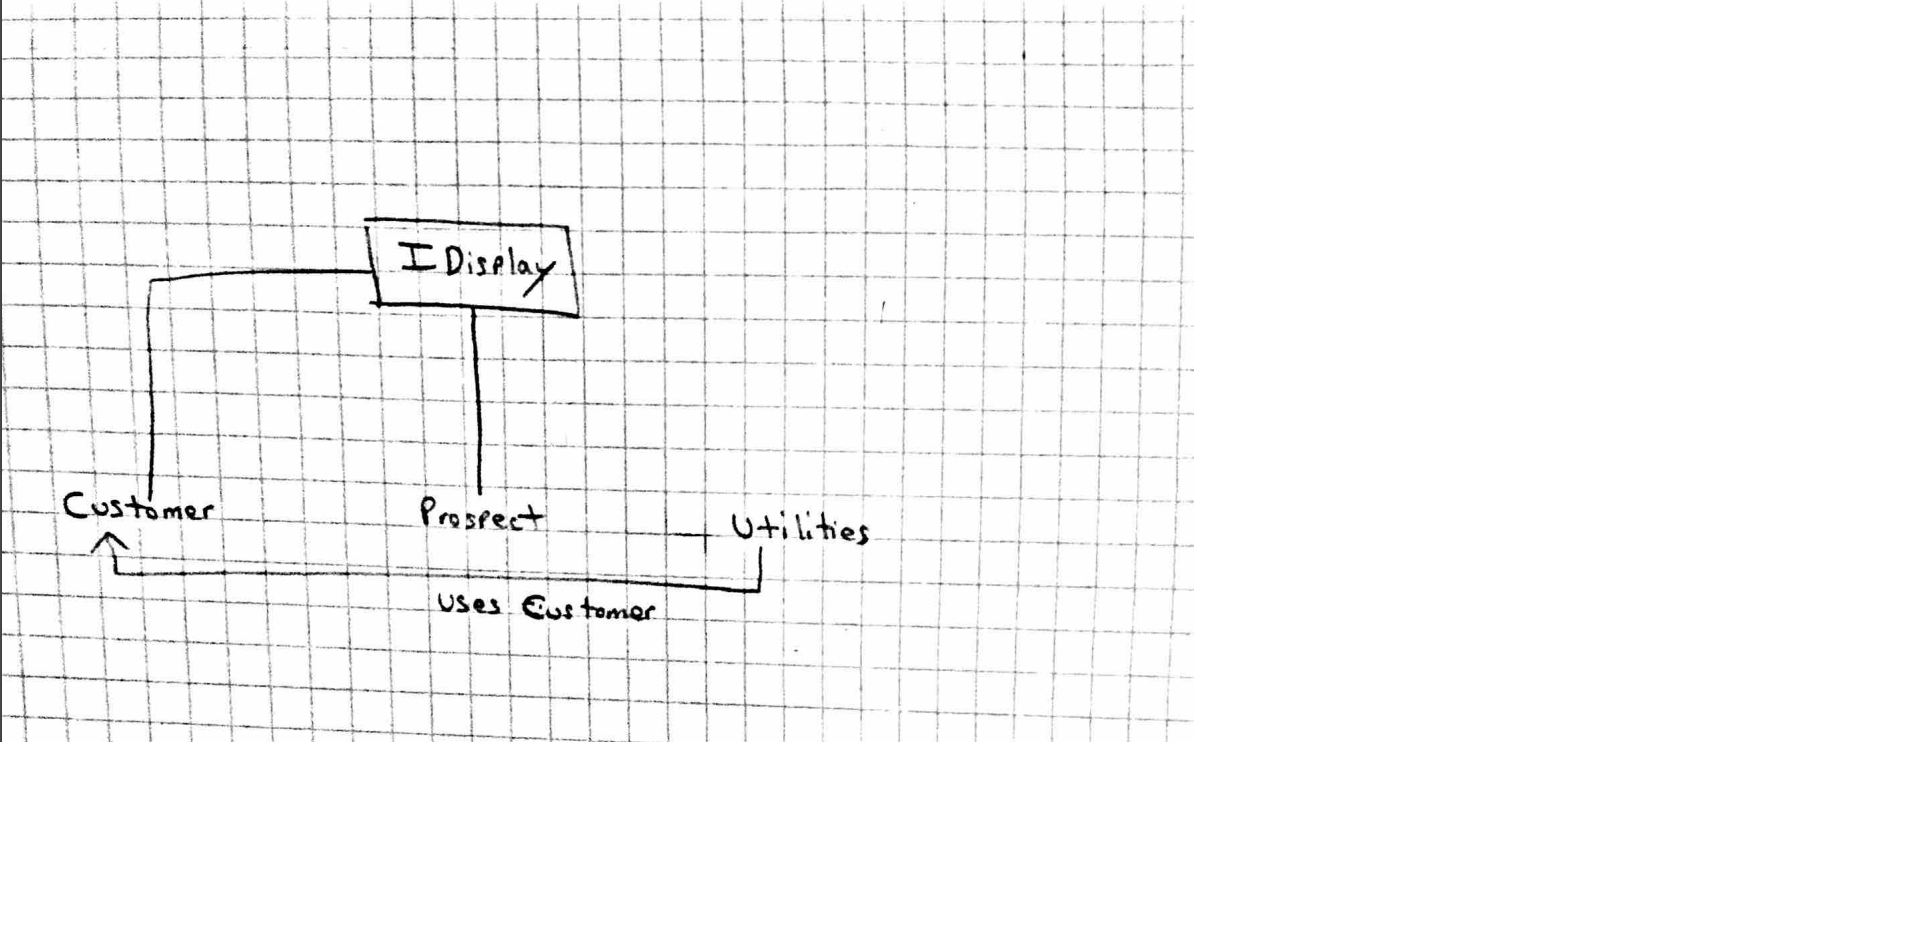 IDisplay
Customer
Prospect
Utilities
uses Customer